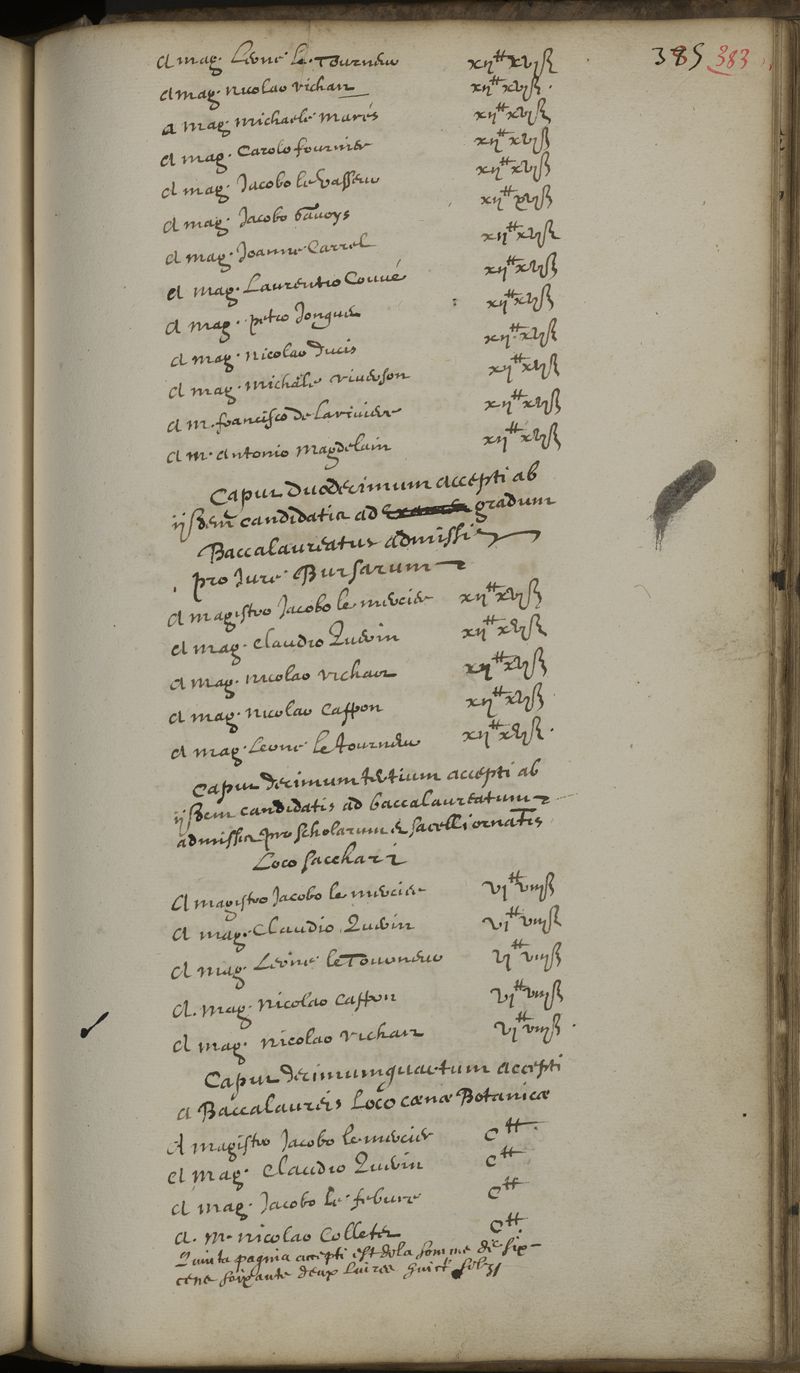 385 383
A mag. Leone le Tourneu xij# xvjß
A mag. nicolao vichar xij# xvjß.
A mag. michaele marés xij# xvjß
A mag. Carolo fournier xij# xvjß
A mag. Jacobo le Vasseu xij# xvjß
A mag. Jacobo xij# xvjß
A mag. Joanne Carrel xij# xvjß
A mag. Laurentio Couué xij# xvjß
A mag. petro xij# xvjß
A mag. nicolao Ducis xij# xvjß
A mag. michaele xij# xvjß
A m. francisco De Lariviere xij# xvjß
A m. Antonio Magdelain xij# xvjß
Caput duodecimum accepti ab
ijsdem candidatis ad gradum
Baccalaureatus admissis
pro Jure Bursarum
A magistro Jacobo le mercier xij# xvjß
A mag. Claudio Quevin xij# xvjß
A mag. nicolao vichar xij# xvjß
A mag. nicolao Cappon xij# xvjß
A mag. Leone le tourneu xij# xvjß.
Caput decimum tertium accepti ab
ijsdem candidatis ad baccalaureatum
admissis pro scholarum & sacelli ornatis
Loco sacchari
A magistro Jacobo le mercier vj# viijß
A mag. Claudio Quevin vj# viijß
A mag. Leone le Tourneu vj# viijß
A. mag. Nicolao Cappon vj# viijß
A mag. nicolao vichar vj# viijß.
Caput decimumquartum accepti
a Baccalaureis Loco cœnæ Botanicæ
A magistro Jacobo le mercier C#
A mag. Claudio Quevin C#
A mag. Jacobo le febure C#
A. m. nicolao Colletet C#
Quinta pagina accepti est de la somme de six
cens soixante deux liures huict solz